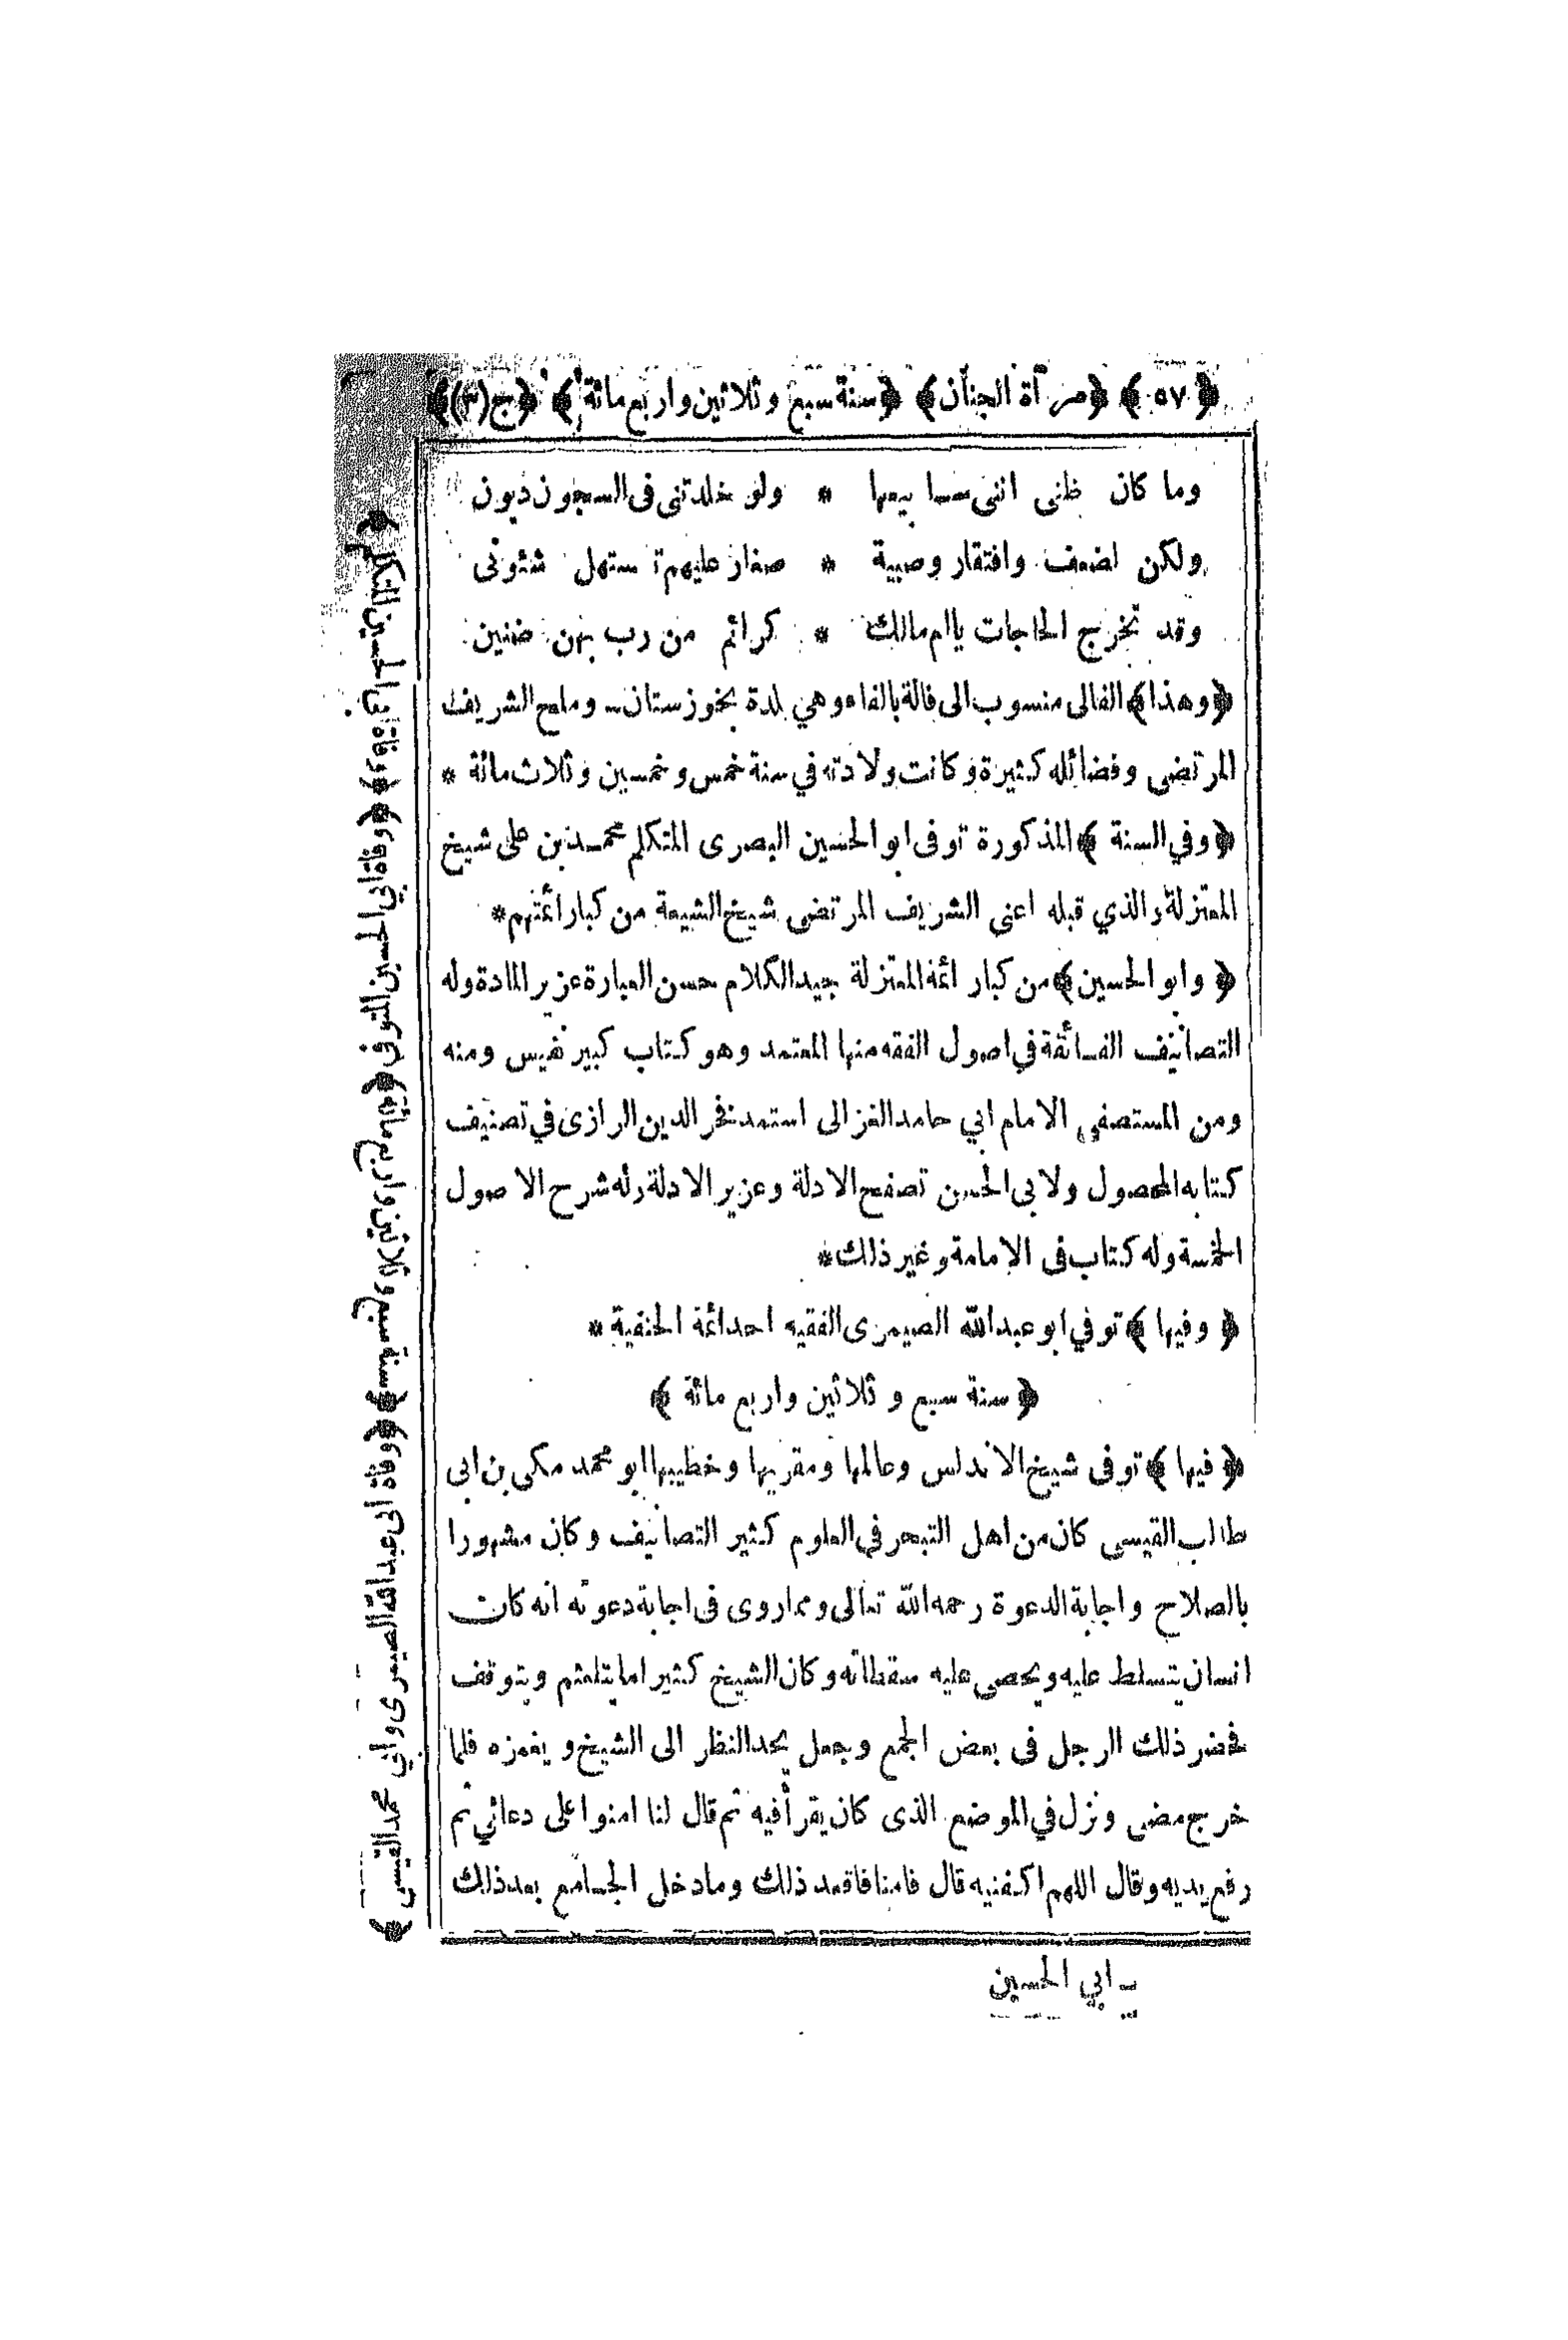 ﴿ ٥٧ ﴾ ﴿مرآة الجنان﴾ ﴿سنة سبع وثلاثين واربع مائة﴾ ﴿ج(٣)﴾
وما كان ظنى اننى سا بيعها * ولو خلدتنى فى السجون ديون
ولكن لضعف وافتقار وصبية * صغار عليهم تستهل شئونى
وقد تخرج الحاجات ياام مالك * كرائم من رب بهن ضنين
﴿وهذا﴾ الفالى منسوب الى فالة بالفاء وهي بلدة بخوزستان ــ وملح الشريف
المرتضى وفضائله كثيرة وكانت ولادته في سنة خمس وخمسين وثلاث مائة *
﴿وفي السنة﴾ المذكورة توفى ابو الحسين البصرى المتكلم محمد بن على شيخ
المعتزلة والذي قبله اعنى الشريف المرتضى شيخ الشيعة من كبار ائمتهم *
﴿وابو الحسين﴾ من كبار ائمة المعتزلة جيد الكلام حسن العبارة عزير المادة وله
التصانيف الفائقة في اصول الفقه منها المعتمد وهو كتاب كبير نفيس ومنه
ومن المستصفى الامام ابي حامد الغزالى استمد فخر الدين الرازى في تصنيف
كتابه المحصول ولابى الحسن تصفح الادلة وعزير الادلة وله شرح الاصول
الخمسة وله كتاب فى الامامة وغير ذلك *
﴿وفيها﴾ توفي ابو عبد الله الصيمرى الفقيه احد ائمة الحنفية *
﴿سنة سبع وثلاثين واربع مائة﴾
﴿فيها﴾ توفى شيخ الاندلس وعالمها ومقريها وخطيبها ابو محمد مكى بن ابى
طالب القيسى كان من اهل التبحر في العلوم كثير التصانيف وكان مشهورا
بالصلاح واجابة الدعوة رحمه الله تعالى ومما روى فى اجابة دعوته انه كان
انسان يتسلط عليه ويحصى عليه سقطاته وكان الشيخ كثيرا ما يتلعثم ويتوقف
فحضر ذلك الرجل فى بعض الجمع وجعل يحد النظر الى الشيخ ويغمزه فلما
خرج مضى ونزل في الموضع الذى كان يقرأ فيه ثم قال لنا امنوا على دعائي ثم
رفع يديه وقال اللهم اكفنيه قال فامنا فاقعد ذلك وما دخل الجامع بعد ذلك
ـ ابي الحسين
﴿وفاة ابى الحسين المتكلم﴾ ﴿وفاة ابي الحسين المتوفي﴾ ﴿سنة سبع وثلاثين واربع مائة﴾ ﴿وفاة ابى عبد الله الصيمرى وابي محمد القيسى﴾